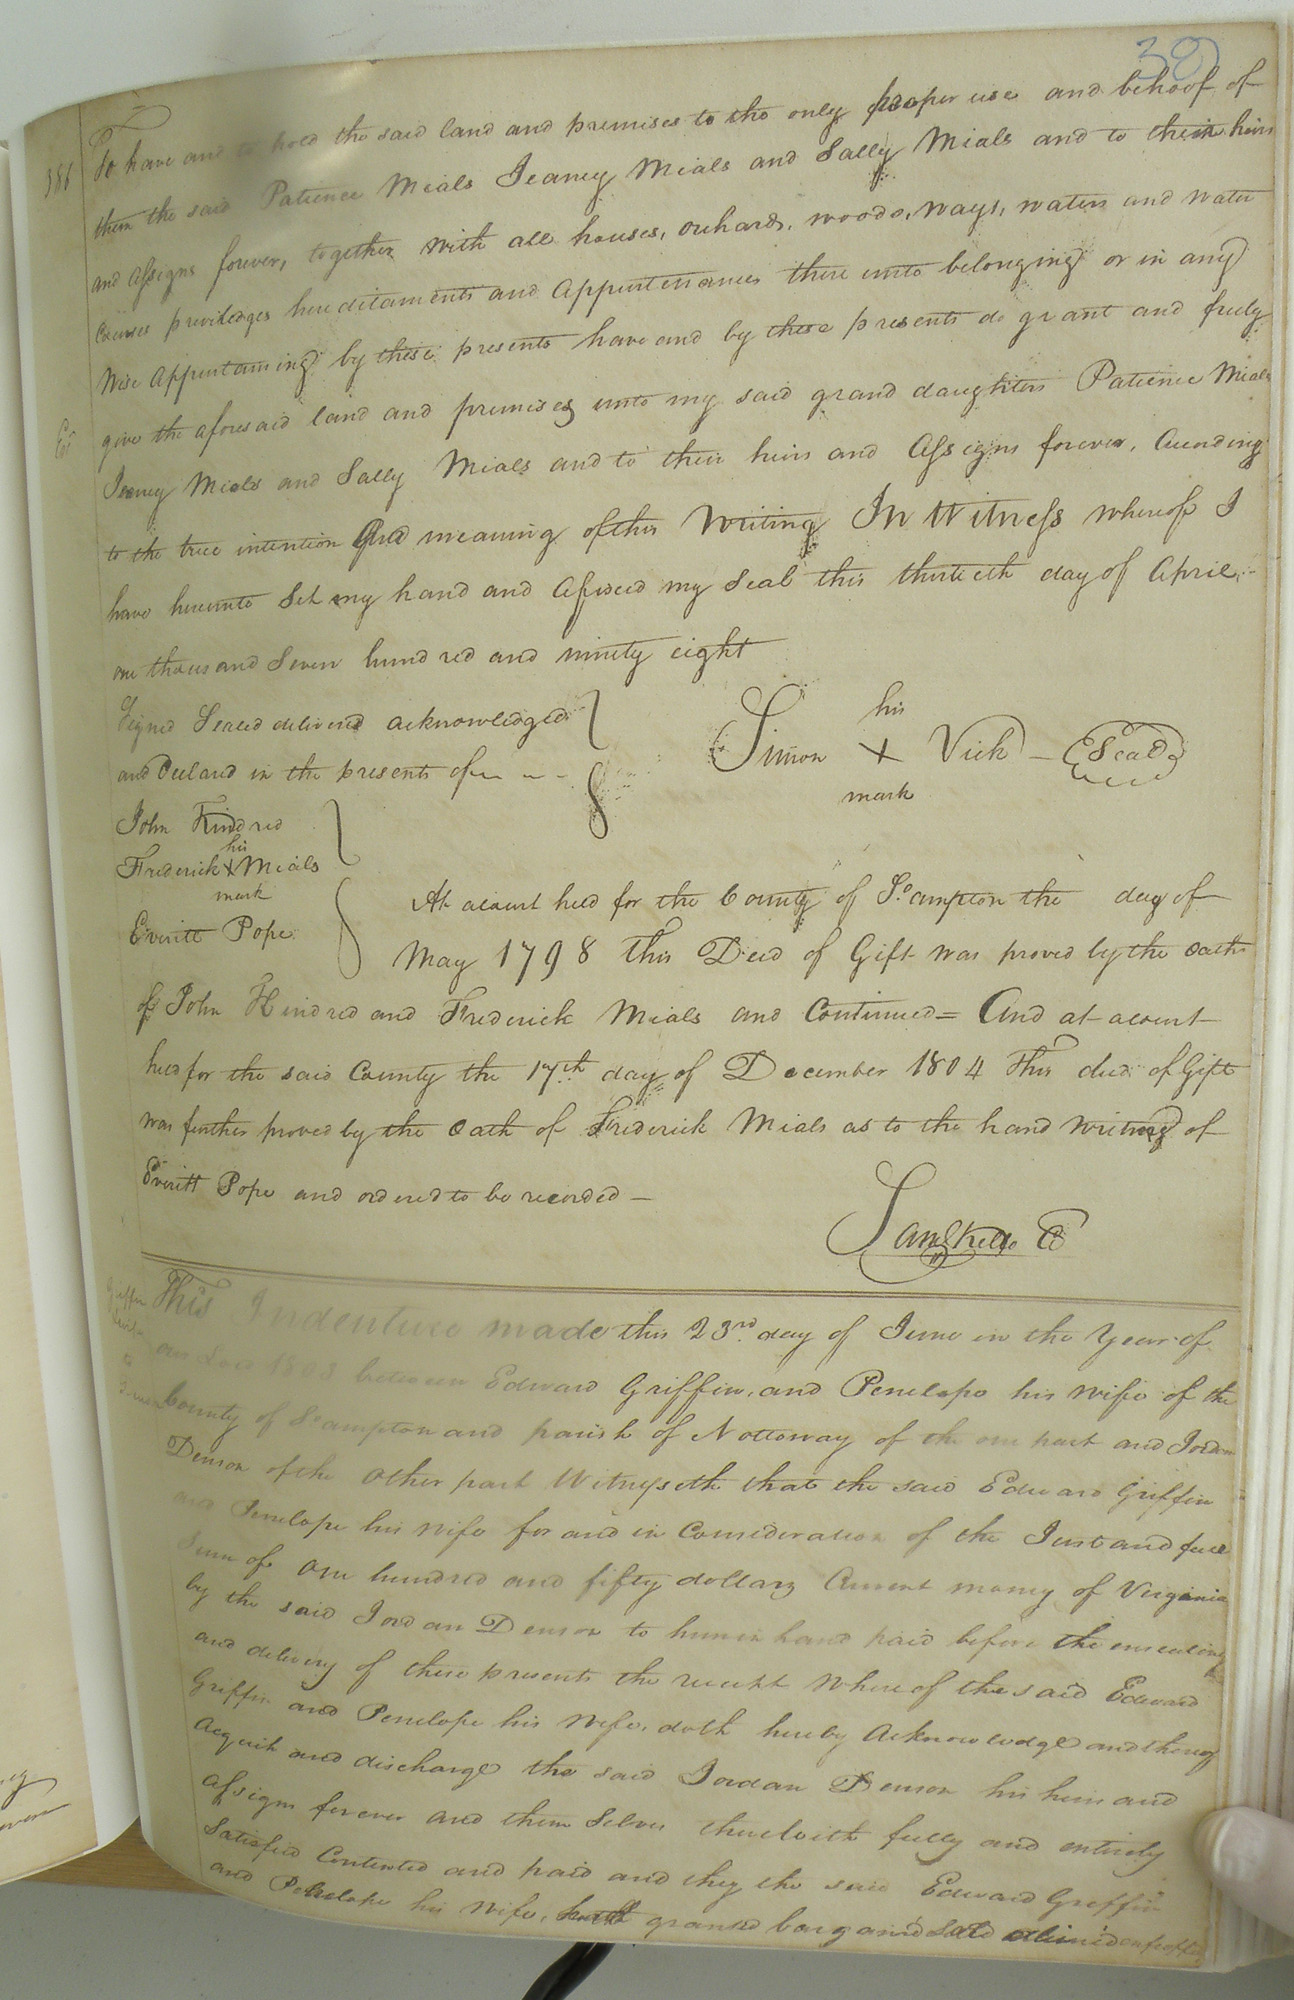 386
To have and to hold the said land and premises to the only proper use and behoof of
them the said Patience Mials Jeaney Mials and Sally Mials and to their heirs
and assigns forever, together with all houses, orchards, woods, ways, waters and water
Courses previledges hereditaments and appurtenances there unto belonging or in any
Wise Appurtaining by these presents have and by these presents do grant and freely
give the aforesaid land and premises unto my said grand daughters Patience Mials
Jeaney Mials and Sally Mials and to their heirs and Assigns forever, According
to the true intention And meaning of this Writing In Witness whereof I
have hereunto Set my hand and Affixed my Seal this thirtieth day of April
one thousand Seven hundred and ninety eight
Signed Sealed delivered acknowledged
and Declared in the presents of
Simon his X mark Vick Seal
John Kindred
Frederick his X mark Mials
Everitt Pope
At a court held for the County of So.ampton the day of
May 1798 This Deed of Gift was proved by the oaths
of John Kindred and Frederick Mials and Continued = And at a court
held for the said County the 17th day of December 1804 This deed of Gift
was further proved by the oath of Frederick Mials as to the hand writing of
Everitt Pope and ordered to be recorded —
Griffin
to
This Indenture made this 23rd day of June in the Year of
our Lord 1803 between Edward Griffin, and Penelope his wife of the
County of So.ampton and parish of Nottoway of the one part and Jordan
Denson of the other part Witnesseth that the said Edward Griffin
and Penelope his wife for and in Consideration of the Just and full
Sum of One hundred and fifty dollars Current money of Virginia
by the said Jordan Denson to him in hand paid before the ensealing
and delivery of these presents the receipt Whereof the said Edward
Griffin and Penelope his Wife, doth hereby Acknowledge and thereof
Acquit and discharge the said Jordan Denson his heirs and
assigns forever and them Selves therewith fully and entirely
Satisfied Contented and paid and they the said Edward Griffin
and Penelope his Wife, granted bargained Sold